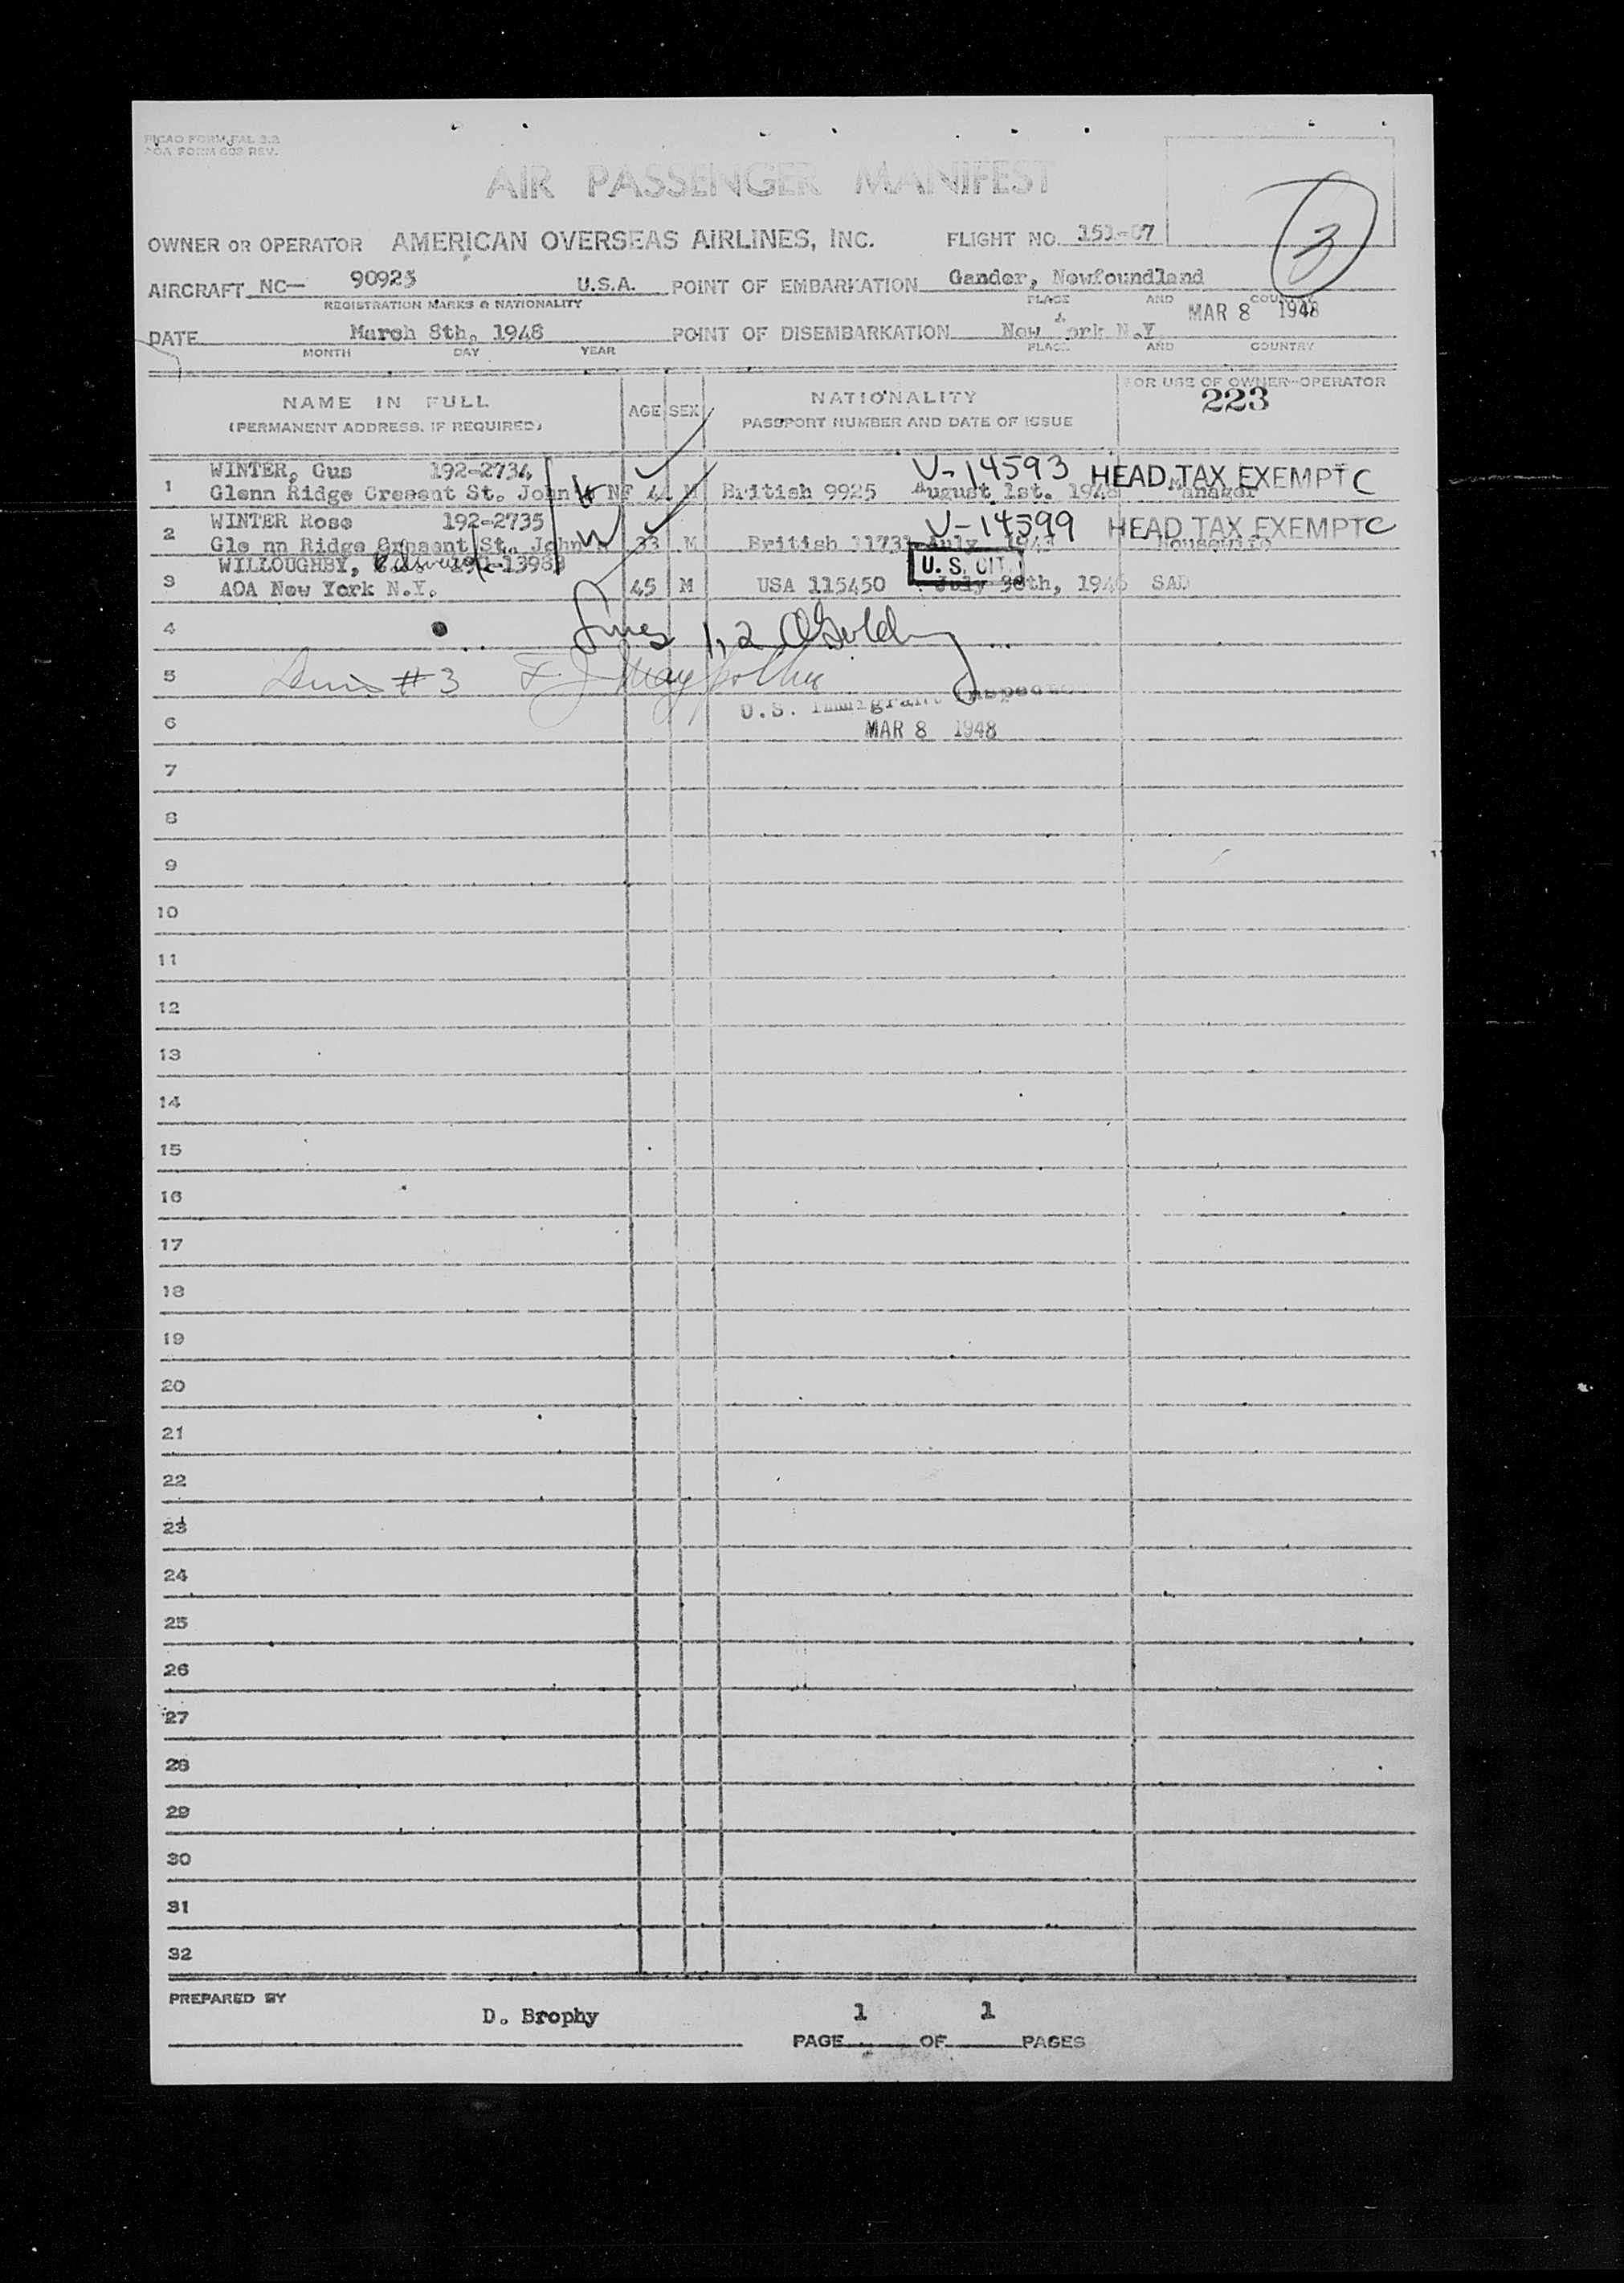 PICAO FORM FAL 2.2
AOA FORM G02 REV.
AIR PASSENGER MANIFEST
3
OWNER OR OPERATOR AMERICAN OVERSEAS AIRLINES, INC. FLIGHT NO. 151-07
AIRCRAFT NC— 90925 U.S.A. POINT OF EMBARKATION Gander, Newfoundland
REGISTRATION MARKS & NATIONALITY PLACE AND COUNTRY
MAR 8 1948
DATE March 8th, 1948 POINT OF DISEMBARKATION New ork N.Y.
MONTH DAY YEAR PLACE AND COUNTRY
NAME IN FULL AGE SEX NATIONALITY FOR USE OF OWNER-OPERATOR
(PERMANENT ADDRESS, IF REQUIRED) PASSPORT NUMBER AND DATE OF ISSUE 223
WINTER, Gus 192-2734 V-14593 HEAD TAX EXEMPT C
1 Glenn Ridge Cresent St. John's NF 44 M British 9925 August 1st. 1946 Manager
WINTER Rose 192-2735 W V-14599 HEAD TAX EXEMPT C
2 Gle nn Ridge Cresent St. John 33 M British July Housewife
WILLOUGHBY, U.S. CIT.
3 AOA New York N.Y. 45 M USA 115450 July 30th, 1946 SAD
4 Lines 1,2
5 #3
U.S. Immigrant Inspector
6 MAR 8 1948
7
8
9
10
11
12
13
14
15
16
17
18
19
20
21
22
23
24
25
26
27
28
29
30
31
32
PREPARED BY
D. Brophy 1 1
PAGE OF PAGES